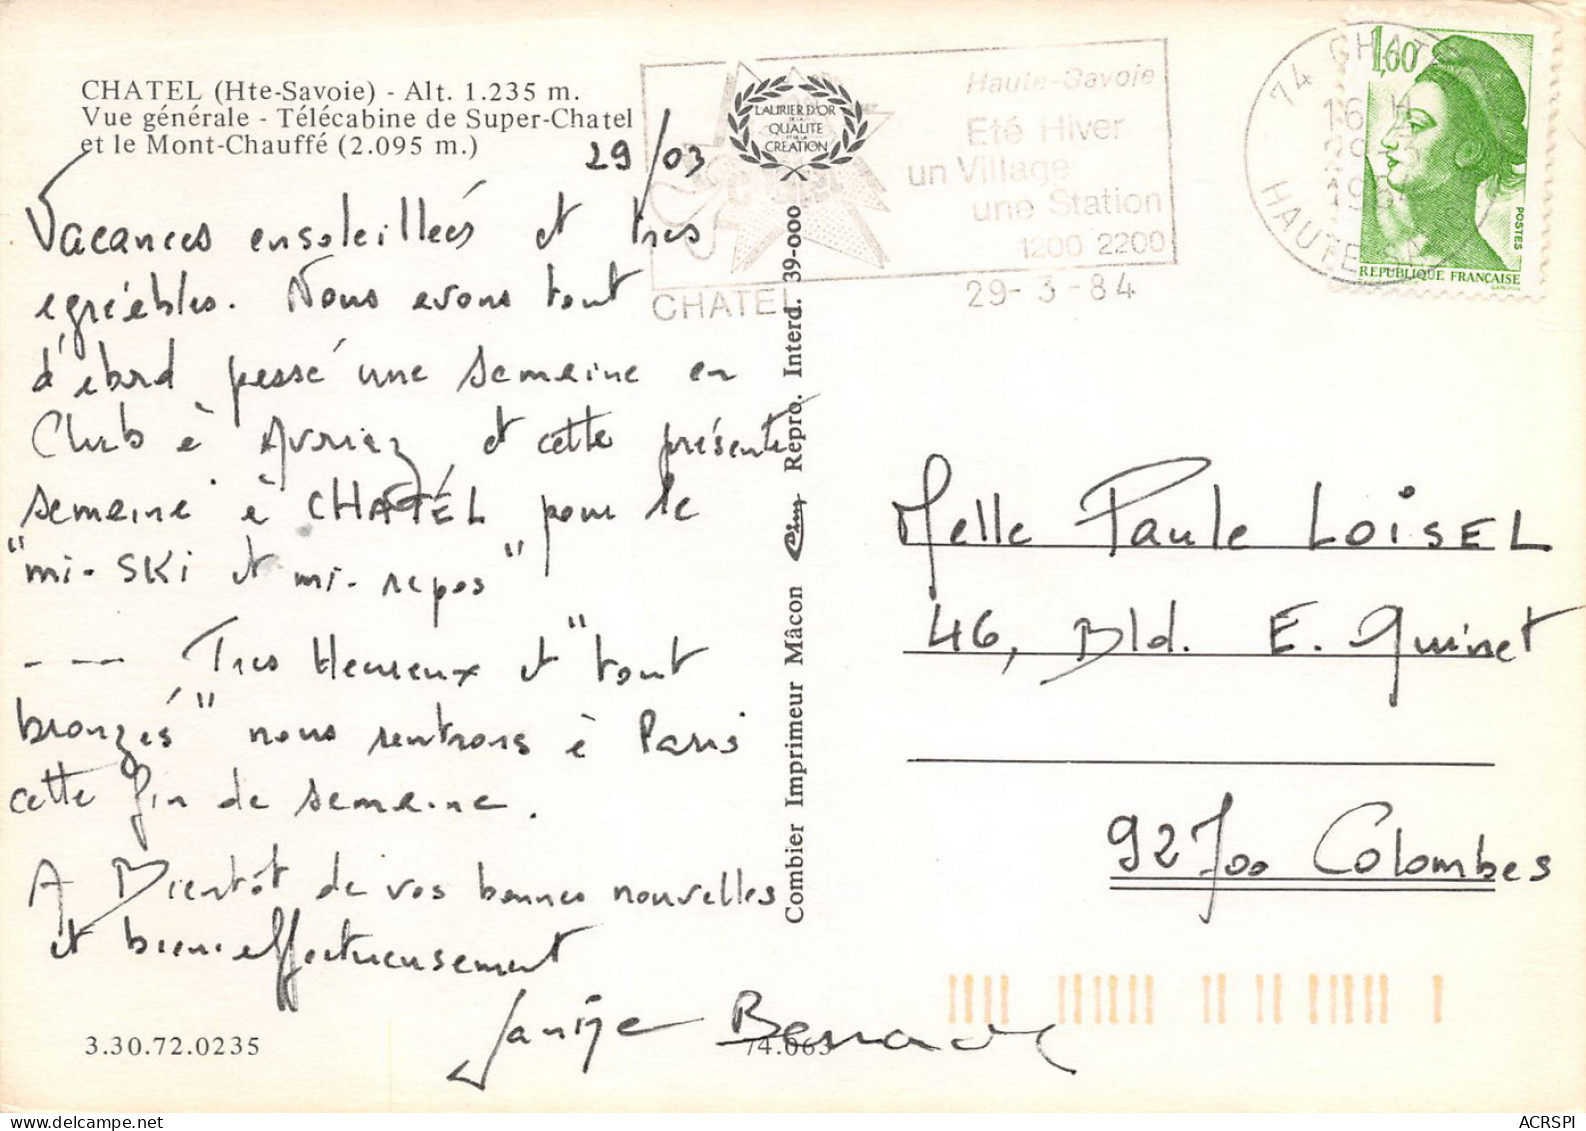 CHATEL (Hte-Savoie) - Alt. 1.235 m.
Vue générale - Télécabine de Super-Chatel
et le Mont-Chauffé (2.095 m.)
29/03
Vacances ensoleillées et très
agréables. Nous avons tout
d'abord passé une semaine en
Club à Avoriaz et cette présente
semaine à CHATÉL pour le
"mi-SKi et mi-repos"
--- Très Heureux et "tout
bronzés" nous rentrons à Paris
cette fin de semaine.
A Bientôt de vos bonnes nouvelles
et bien affectueusement
3.30.72.0235
74.063
LAURIER D'OR
DE LA
QUALITE
ET DE LA
CREATION
Combier Imprimeur Mâcon Cim Repro. Interd. 39-000
Haute-Savoie
Eté Hiver
un Village
une Station
1200 2200
CHATEL
29-3-84
74 CHATEL
16 H
29-3
1984
HAUTE SA
1,60
POSTES
REPUBLIQUE FRANÇAISE
GANDON
Melle Paule LOiSEL
46, Bld. E. Quinet
92700 Colombes
ACRSPI